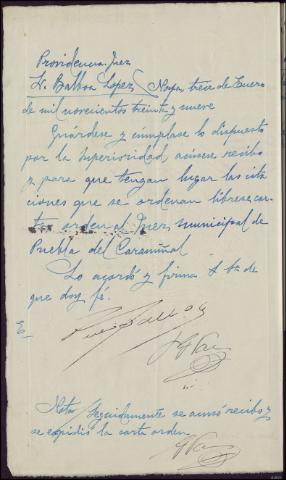 Providencia Juez
Sr. Balboa Lopez / Noya, trece de Enero
de mil novecientos treinta y nueve
Guárdese y cúmplase lo dispuesto
por la Superioridad acúsese recibo
y para que tengan lugar las cita
ciones que se ordenan líbrese car
ta orden al Juez municipal de
Puebla del Caramiñal
Lo acordó y firma S Sª de
que doy fé.
Nota / Seguidamente se acusó recibo y
se expidió la carta orden.